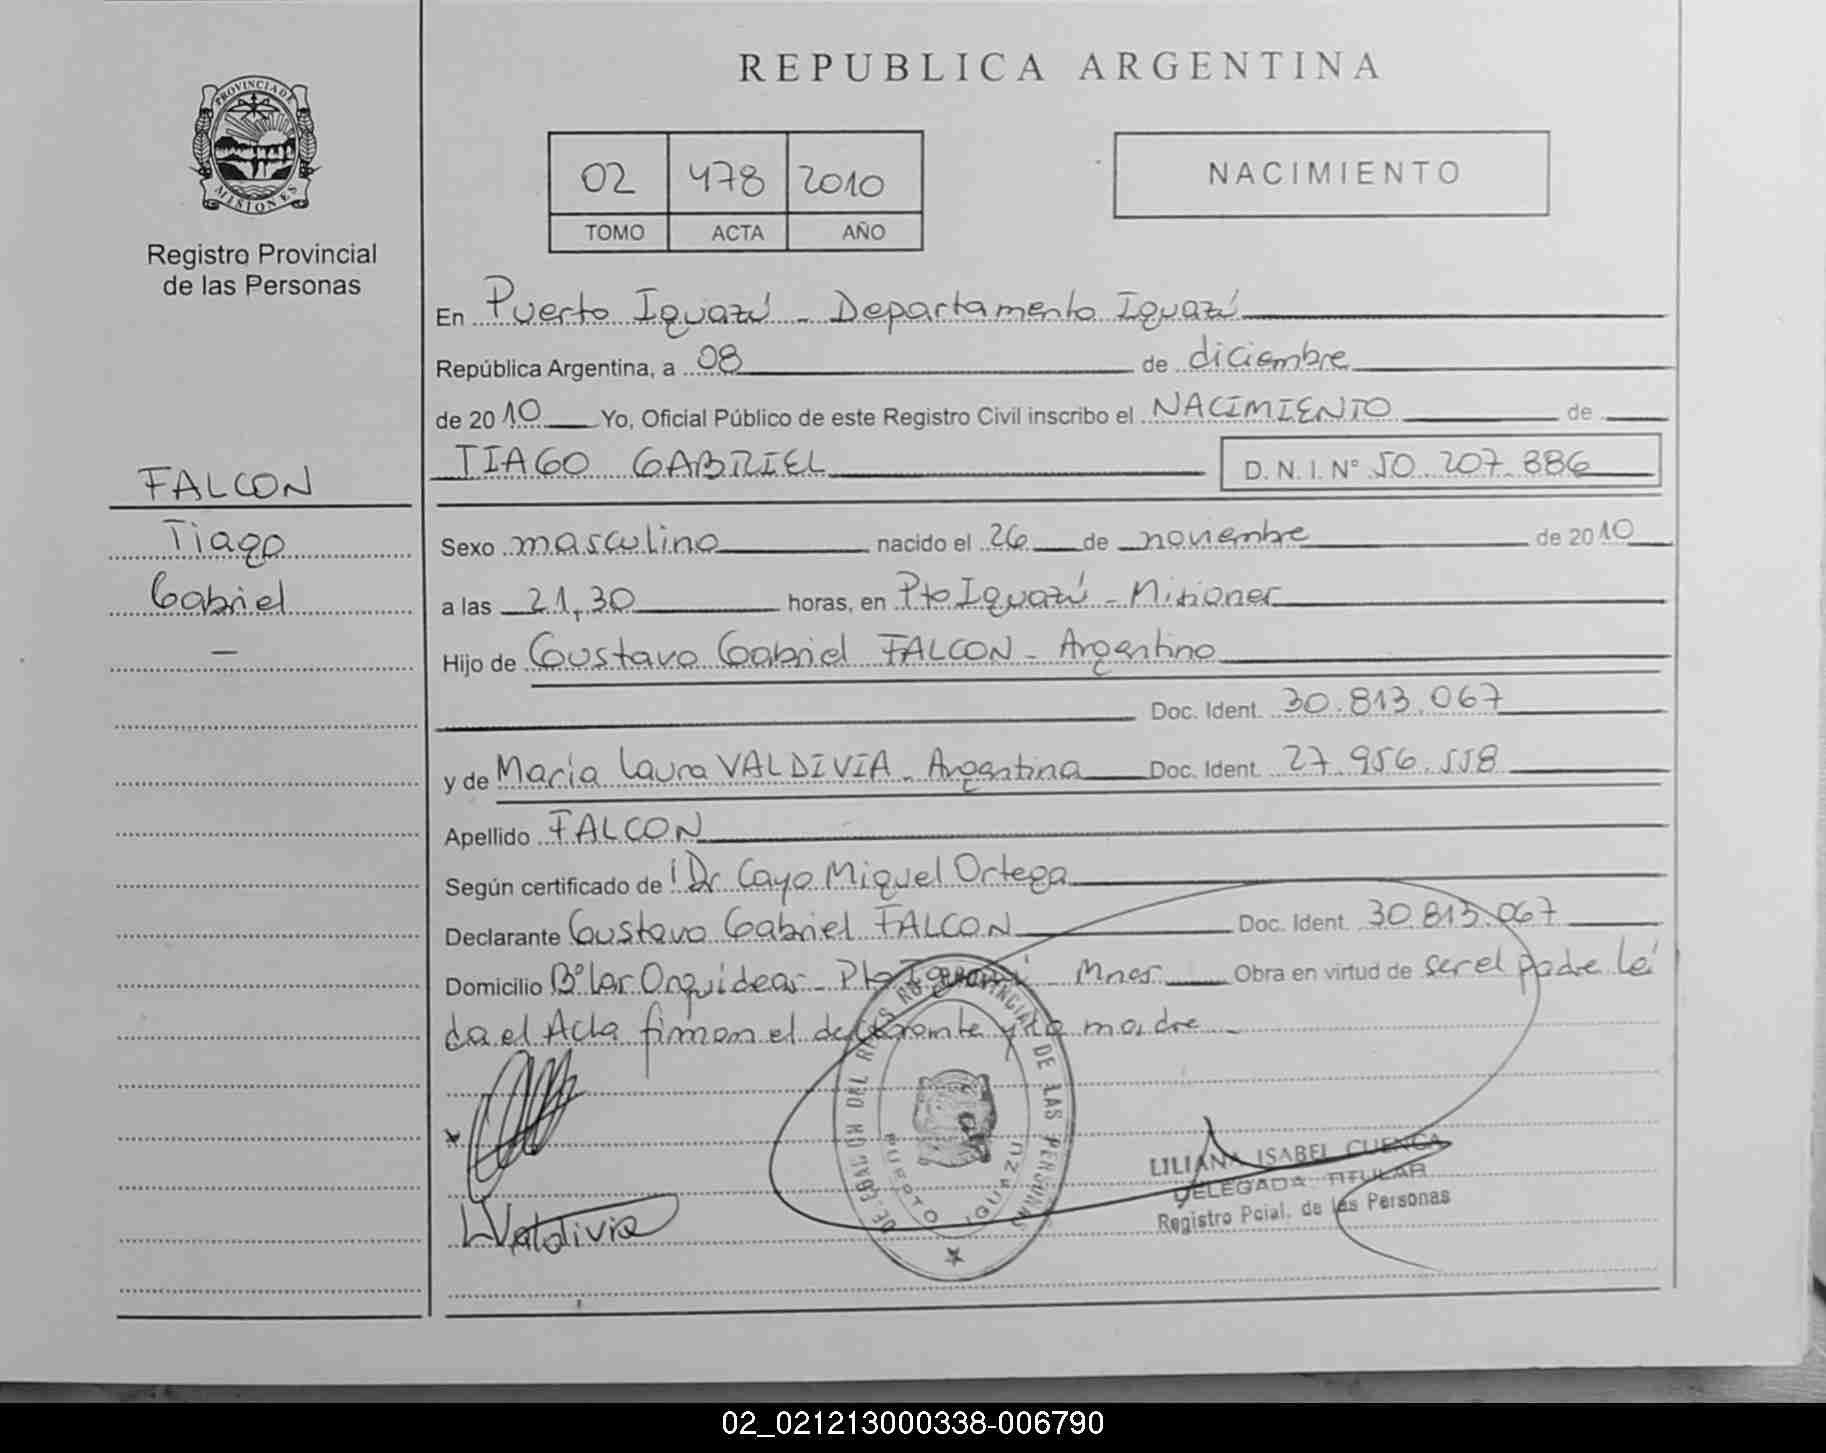 REPUBLICA ARGENTINA
PROVINCIA DE
MISIONES
Registro Provincial
de las Personas
02 478 2010
TOMO ACTA AÑO
NACIMIENTO
En Puerto Iguazú - Departamento Iguazú
República Argentina, a 08 de diciembre
de 2010 Yo, Oficial Público de este Registro Civil inscribo el NACIMIENTO de
TIAGO GABRIEL D. N. I. N° 50.207.886
FALCON
Tiago
Gabriel
Sexo masculino nacido el 26 de noviembre de 2010
a las 21,30 horas, en Pto Iguazú - Misiones
Hijo de Gustavo Gabriel FALCON - Argentino
Doc. Ident. 30.813.067
y de María Laura VALDIVIA - Argentina Doc. Ident. 27.956.558
Apellido FALCON
Según certificado de Dr Cayo Miguel Ortega
Declarante Gustavo Gabriel FALCON Doc. Ident. 30.813.067
Domicilio B° Las Orquideas - Pto Iguazú - Mnes Obra en virtud de ser el padre Leí
da el Acta firman el declarante y la madre -
LValdivia
PROVINCIAL DE LAS PERSONAS
PUERTO IGUAZU
LILIANA ISABEL CUENCA
DELEGADA TITULAR
Registro Pcial. de las Personas
02_021213000338-006790